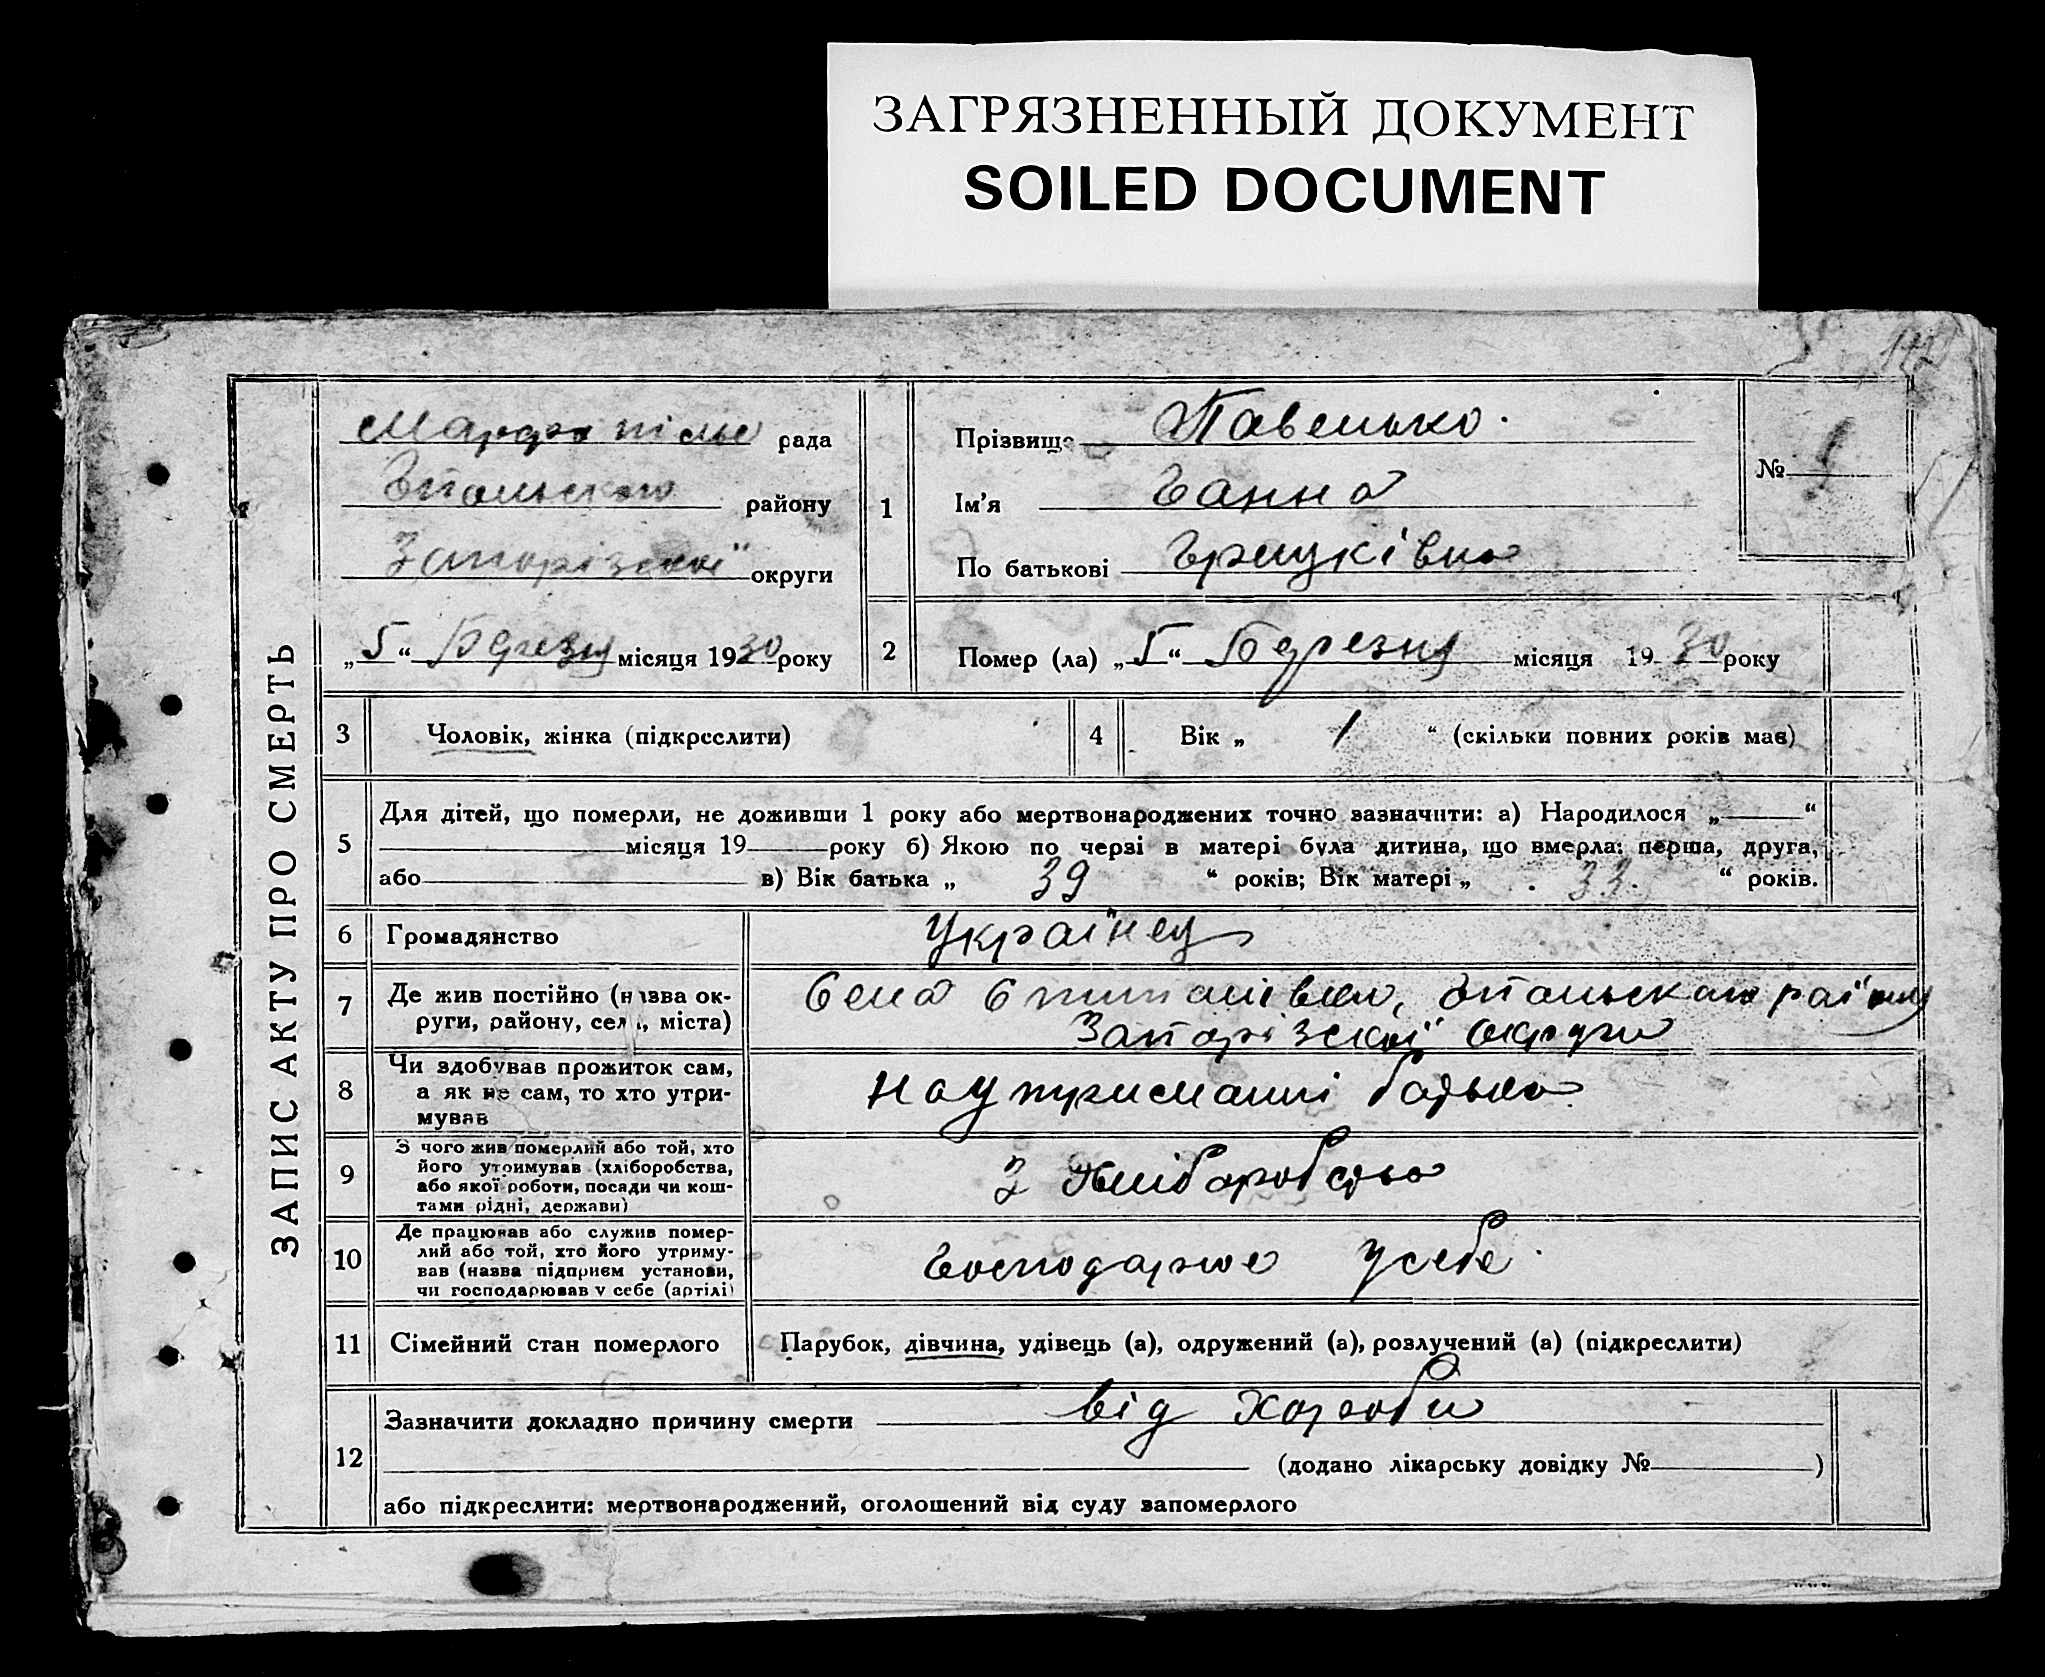 ЗАГРЯЗНЕННЫЙ ДОКУМЕНТ
SOILED DOCUMENT
ЗАПИС АКТУ ПРО СМЕРТЬ
рада
району
Запорізскої округи
„5“ Березня місяця 1930 року
1
Прізвище Павенько.
Ім'я Ганна
По батькові Грицківна
№
2 Помер (ла) „5“ Березня місяця 1930 року
3 Чоловік, жінка (підкреслити)
4 Вік „ 1 “ (скільки повних років має)
5
Для дітей, що померли, не доживши 1 року або мертвонароджених точно зазначити: а) Народилося „ “
місяця 19 року б) Якою по черзі в матері була дитина, що вмерла: перша, друга,
або в) Вік батька „ 39 “ років; Вік матері „ 33. “ років.
6 Громадянство Українец
7 Де жив постійно (назва округи, району, села, міста)
Села району
Запорізскої округи
8 Чи здобував прожиток сам,
а як не сам, то хто утри-
мував
на утриманні батька
9 З чого жив померлий або той, хто
його утримував (хліборобства,
або якої роботи, посади чи кош-
тами рідні, держави)
З Хліборобства
10 Де працював або служив помер-
лий або той, хто його утриму-
вав (назва підприєм установи,
чи господарював у себе (артілі)
Господарює у себе
11 Сімейний стан померлого
Парубок, дівчина, удівець (а), одружений (а), розлучений (а) (підкреслити)
12
Зазначити докладно причину смерти від Хороби
(додано лікарську довідку № )
або підкреслити: мертвонароджений, оголошений від суду запомерлого